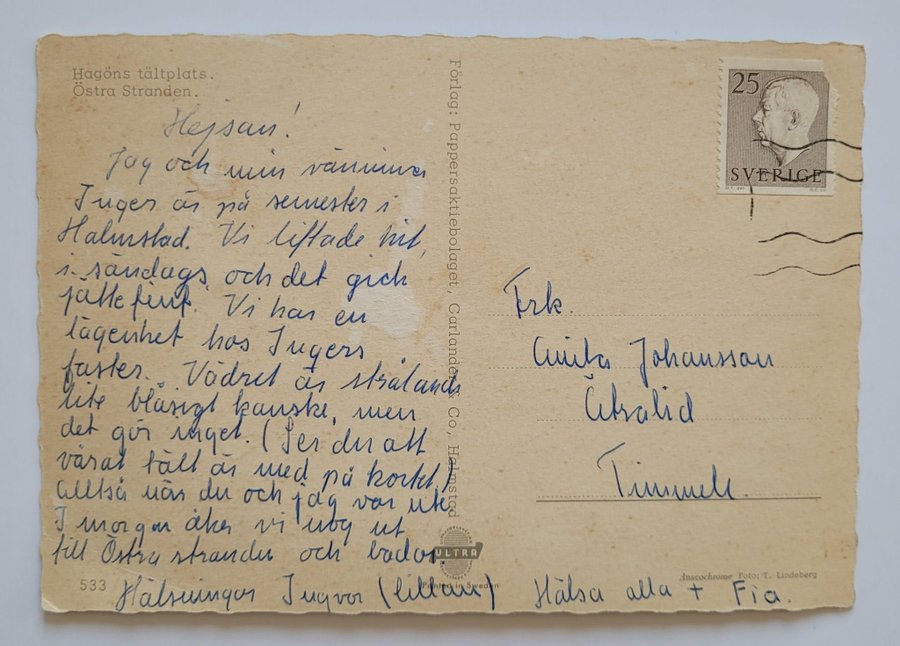 Hagöns tältplats.
Östra Stranden.
Hejsan!
Jag och min väninna
Inger är på semester i
Halmstad. Vi liftade hit
i söndags och det gick
jättefint. Vi har en
lägenhet hos Ingers
faster. Vädret är strålande
lite blåsigt kanske, men
det gör inget. (Ser du att
vårat tält är med på kortet)
alltså när du och jag var ute
I morgon åker vi nog ut
till Östra stranden och badar.
Hälsningar Ingvor (lillan) Hälsa alla + Fia.
533
Förlag: Pappersaktiebolaget, Carlander & Co, Halmstad
ULTRA
Printed in Sweden
25
SVERIGE
Frk.
Anita Johansson
Timmele.
Anscochrome Foto: T. Lindeberg